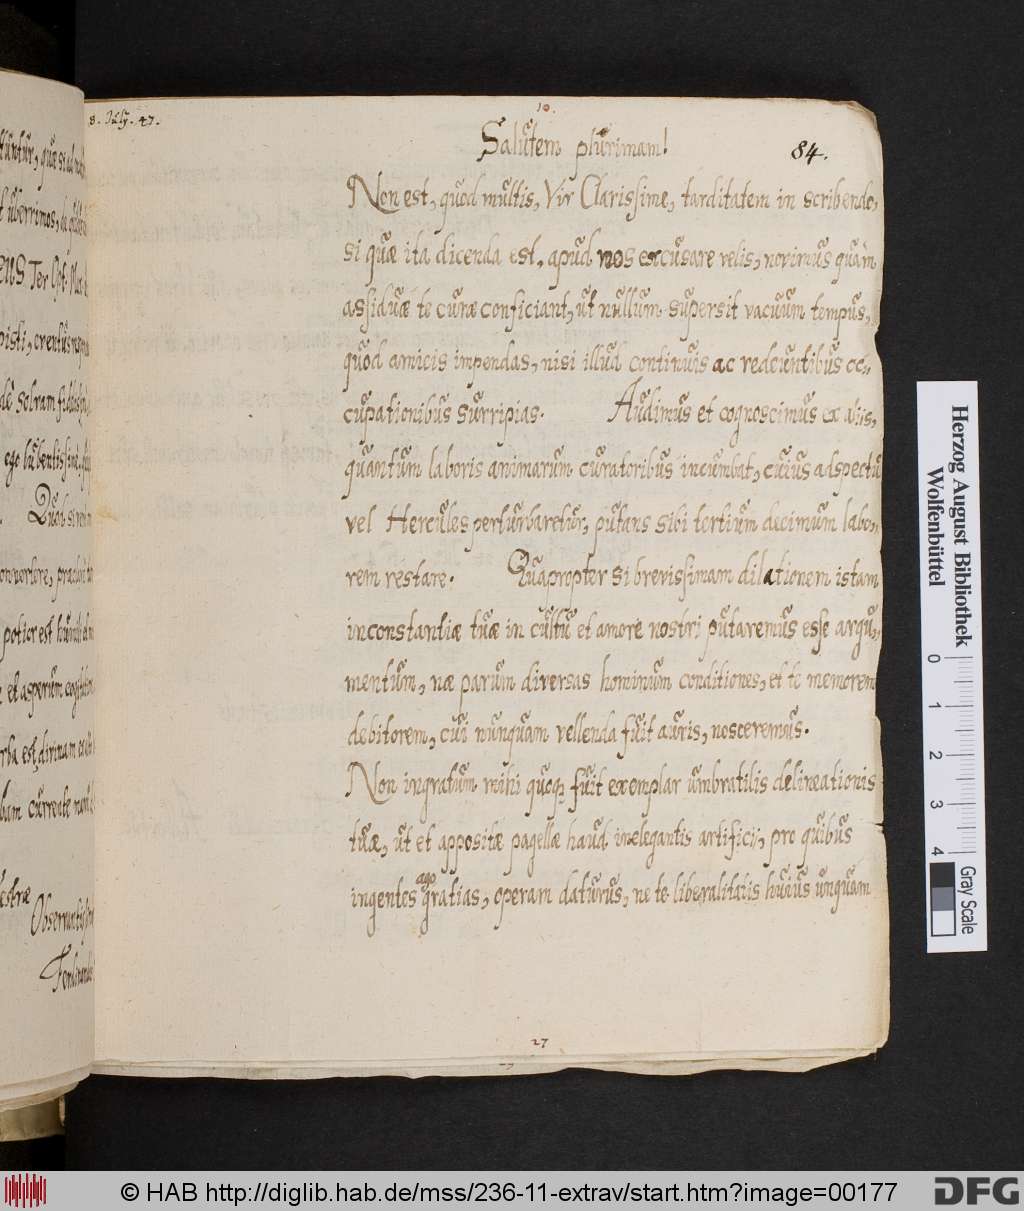 8. July. 47.
10.
84.
Salutem plurimam!
Non est, quod multis, Vir Clarissime, tarditatem in scribendo,
si quæ ita dicenda est, apud nos excusare velis, novimus quàm
assiduæ te curæ conficiant, ut nullum supersit vacuum tempus,
quod amicis impendas, nisi illud continuis ac redeuntibus oc„
cupationibus surripias. Audimus et cognoscimus ex aliis,
quantum laboris animarum curatoribus incumbat, cuius adspectu
vel Hercules perturbaretur, putans sibi tertium decimum labo„
rem restare. Quapropter si brevissimam dilationem istam
inconstantiæ tuæ in cultu et amore nostri putaremus esse argu„
mentum, næ parum diversas hominum conditiones, et te memorem
debitorem, cui nunquam vellenda fuit auris, nosceremus.
Non ingratum mihi quoq; fuit exemplar umbratilis delineationis
tuæ, ut et appositæ pagellæ haud inelegantis artificij, pro quibus
ingentes ago gratias, operam daturus, ne te liberalitatis huius unquam
27
ego
Quòd si
potior est
et asperum
currente
Herzog August Bibliothek
Wolfenbüttel
0 1 2 3 4
Gray Scale
© HAB http://diglib.hab.de/mss/236-11-extrav/start.htm?image=00177
DFG